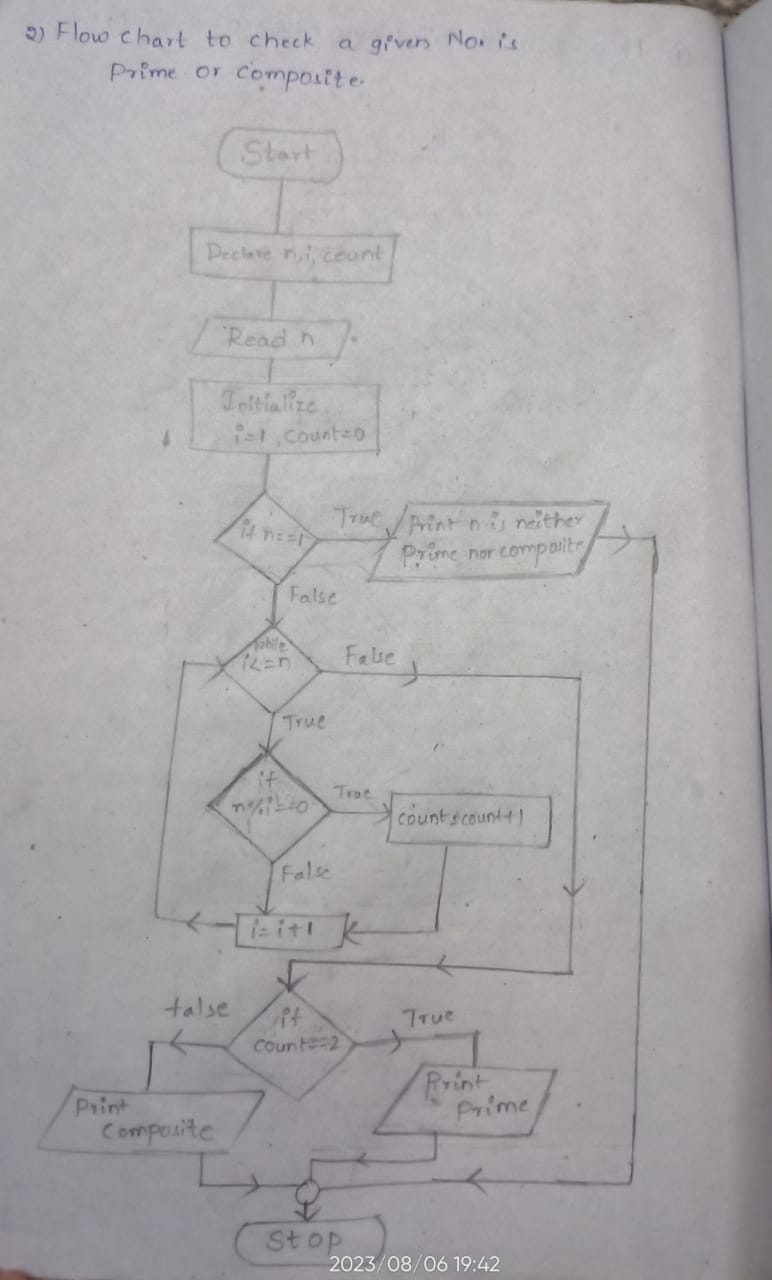 2) Flow chart to check a given No. is
Prime or Composite.
Start
Declare n,i, count
Read n
Initialize
i=1, count=0
if n==1
True
Print n is neither
Prime nor composite
False
while
i<=n
False
True
if
n%i==0
True
count=count+1
False
i=i+1
if
count==2
false
True
Print
Composite
Print
Prime
Stop
2023/08/06 19:42